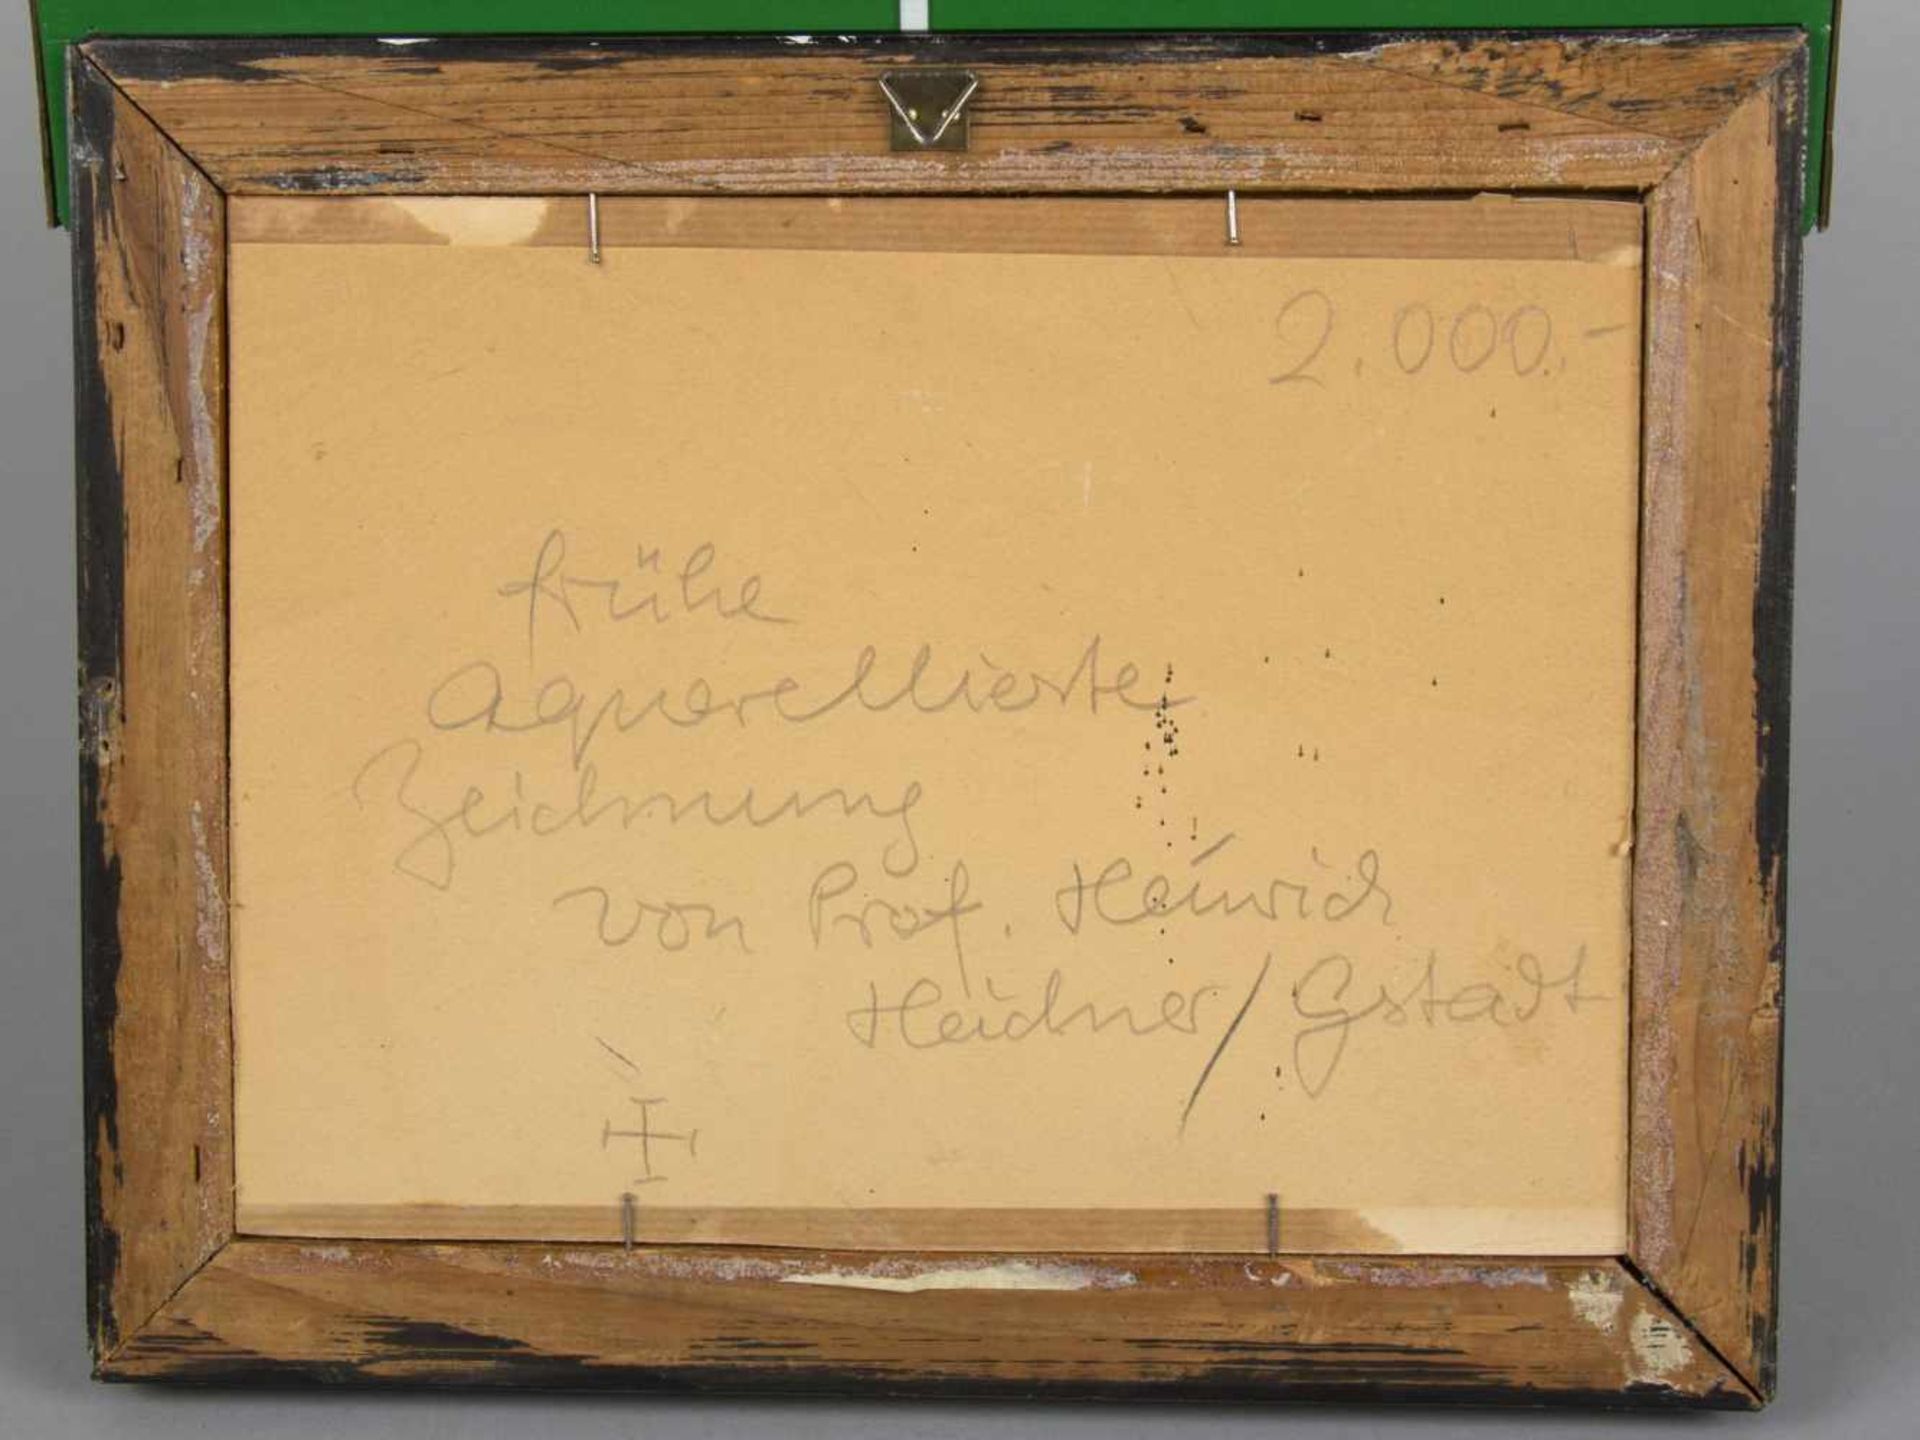 2.000.-
frühe
aquarellierte
Zeichnung
von Prof. Heinrich
Heidner/Gstadt